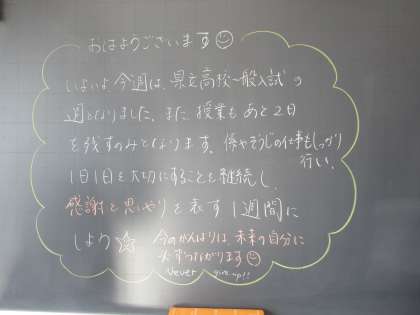 おはようございます
いよいよ今週は、県立高校一般入試の
週となりました。また、授業もあと2日
を残すのみとなります。係やそうじの仕事もしっかり
行い、
1日1日を大切にすることを継続し、
感謝と思いやりを表す1週間に
しよう☆
今のがんばりは、未来の自分に
必ずつながります
Never give up!!